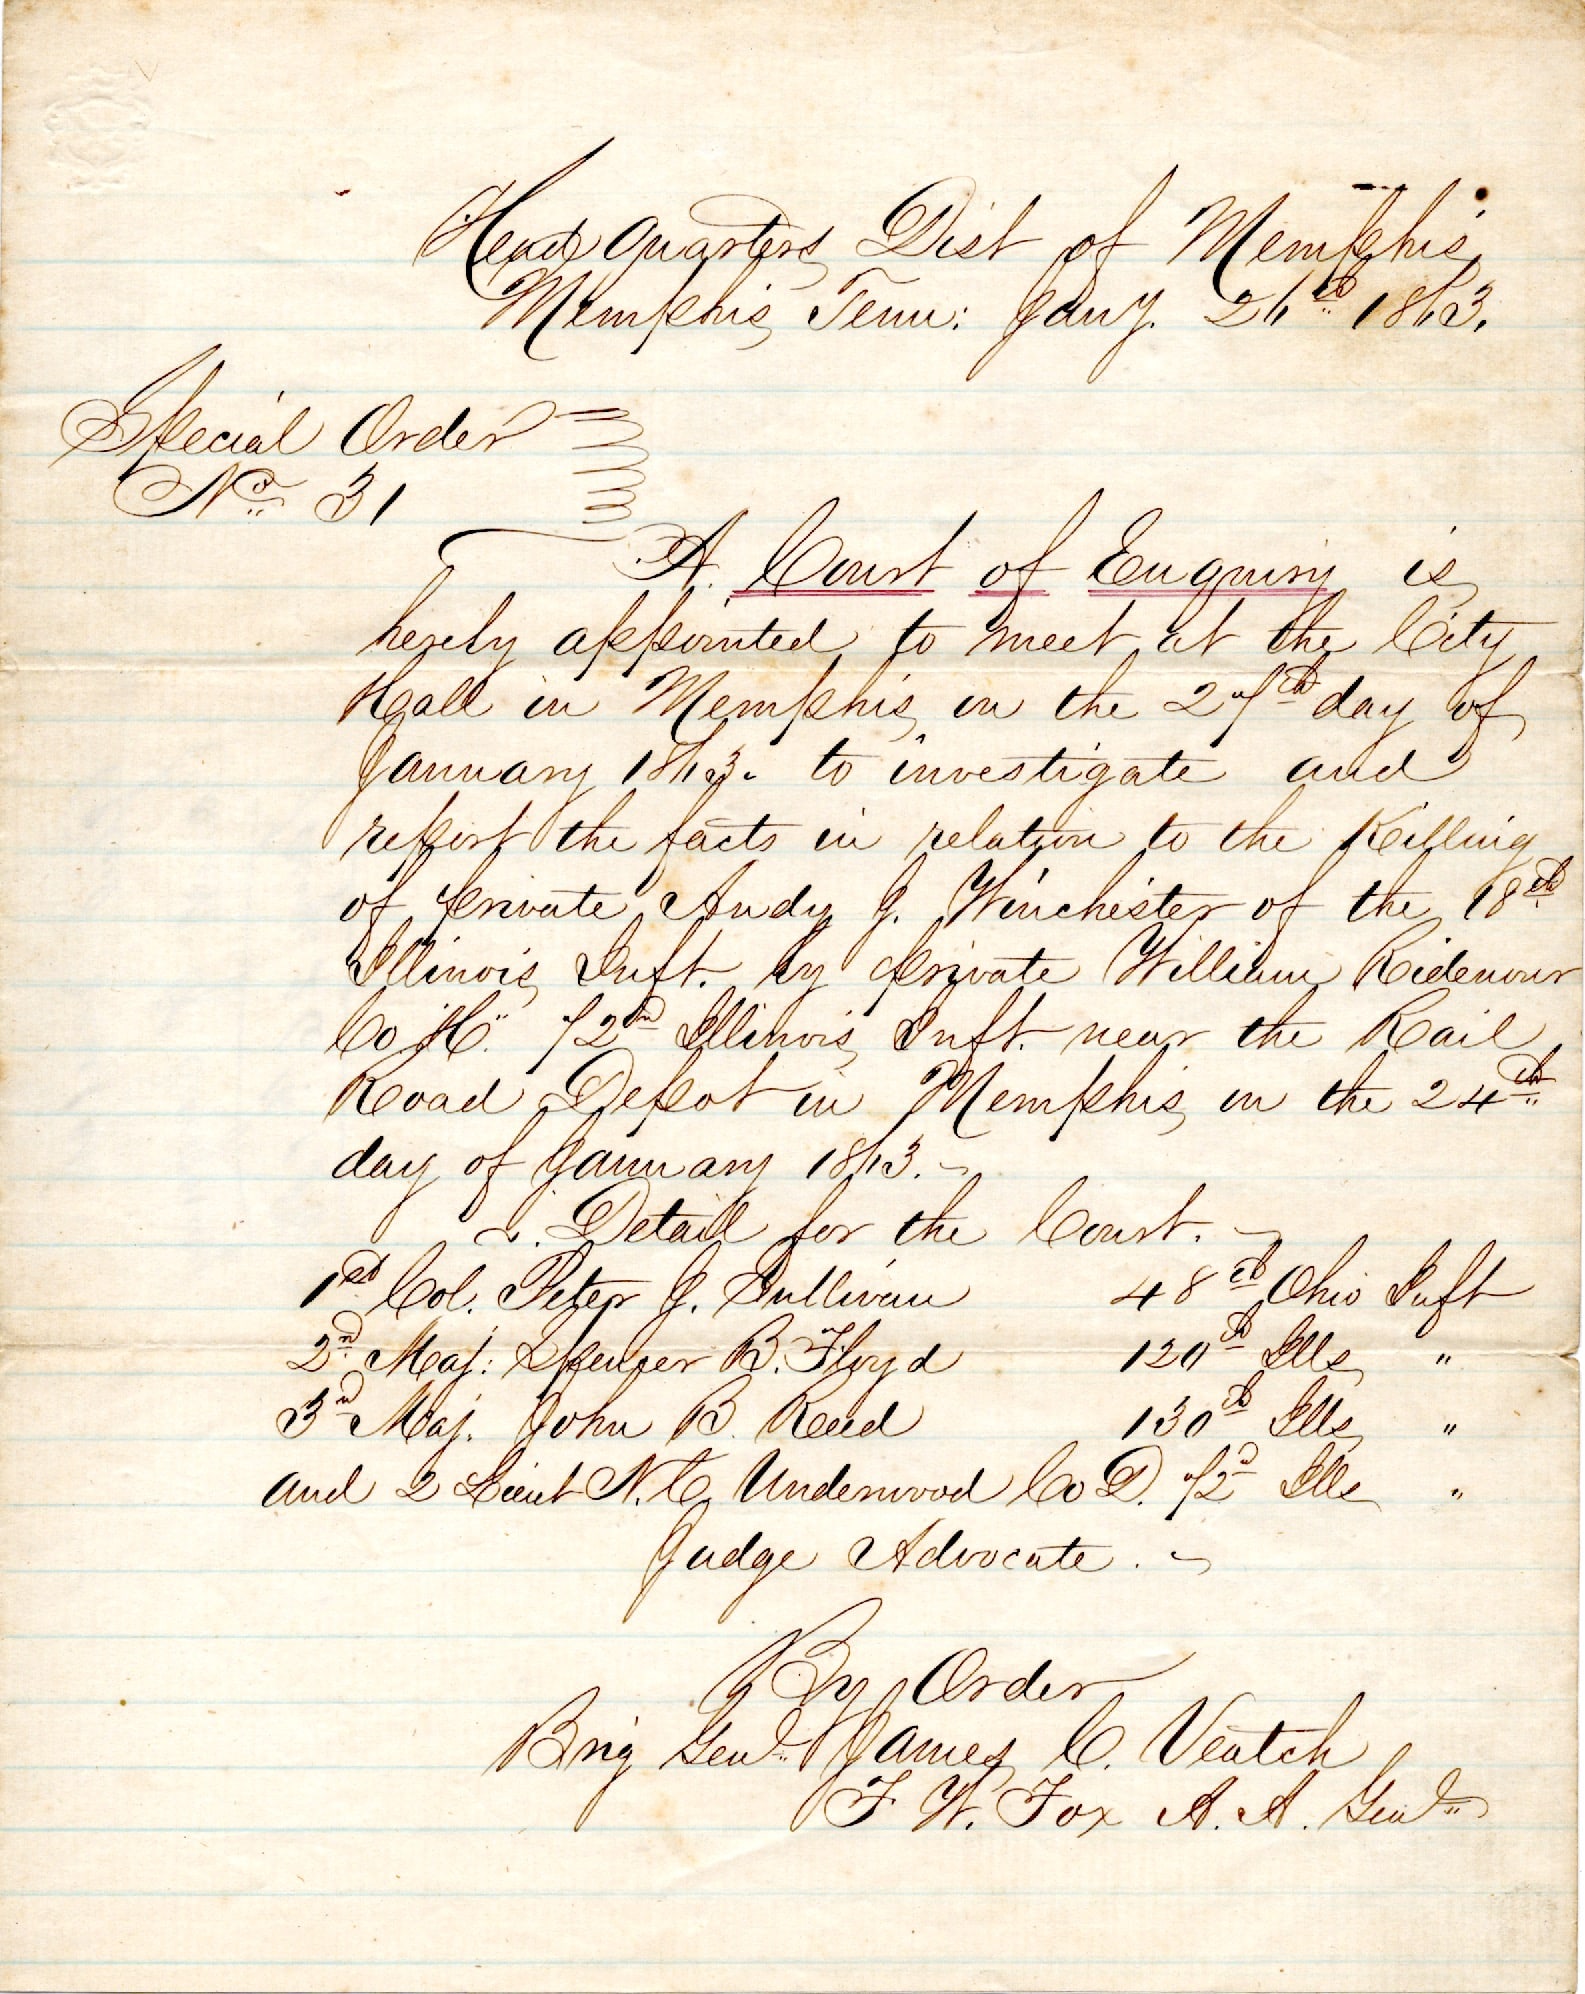 Head Quarters Dist of Memphis
Memphis Tenn: Jany. 26th 1863.
Special Order
No. 31
A. Court of Enquiry is
hereby appointed to meet at the City
Hall in Memphis on the 27th day of
January 1863. to investigate and
report the facts in relation to the Killing
of private Andy J. Winchester of the 18th
Illinois Inft. by private William Ridenour
Co "H." 72nd Illinois Inft. near the Rail
Road Depot in Memphis on the 24th
day of January 1863.
Detail for the Court.
1st Col. Peter J. Sullivan 48th Ohio Inft
2nd Maj: Spencer B. Floyd 120th Ills "
3rd Maj. John B. Reed 130th Ills "
and 2 Lieut N. C. Underwood Co D. 72d Ills "
Judge Advocate.
By Order
Brig Genl. James C. Veatch
F. W. Fox A. A. Genl.